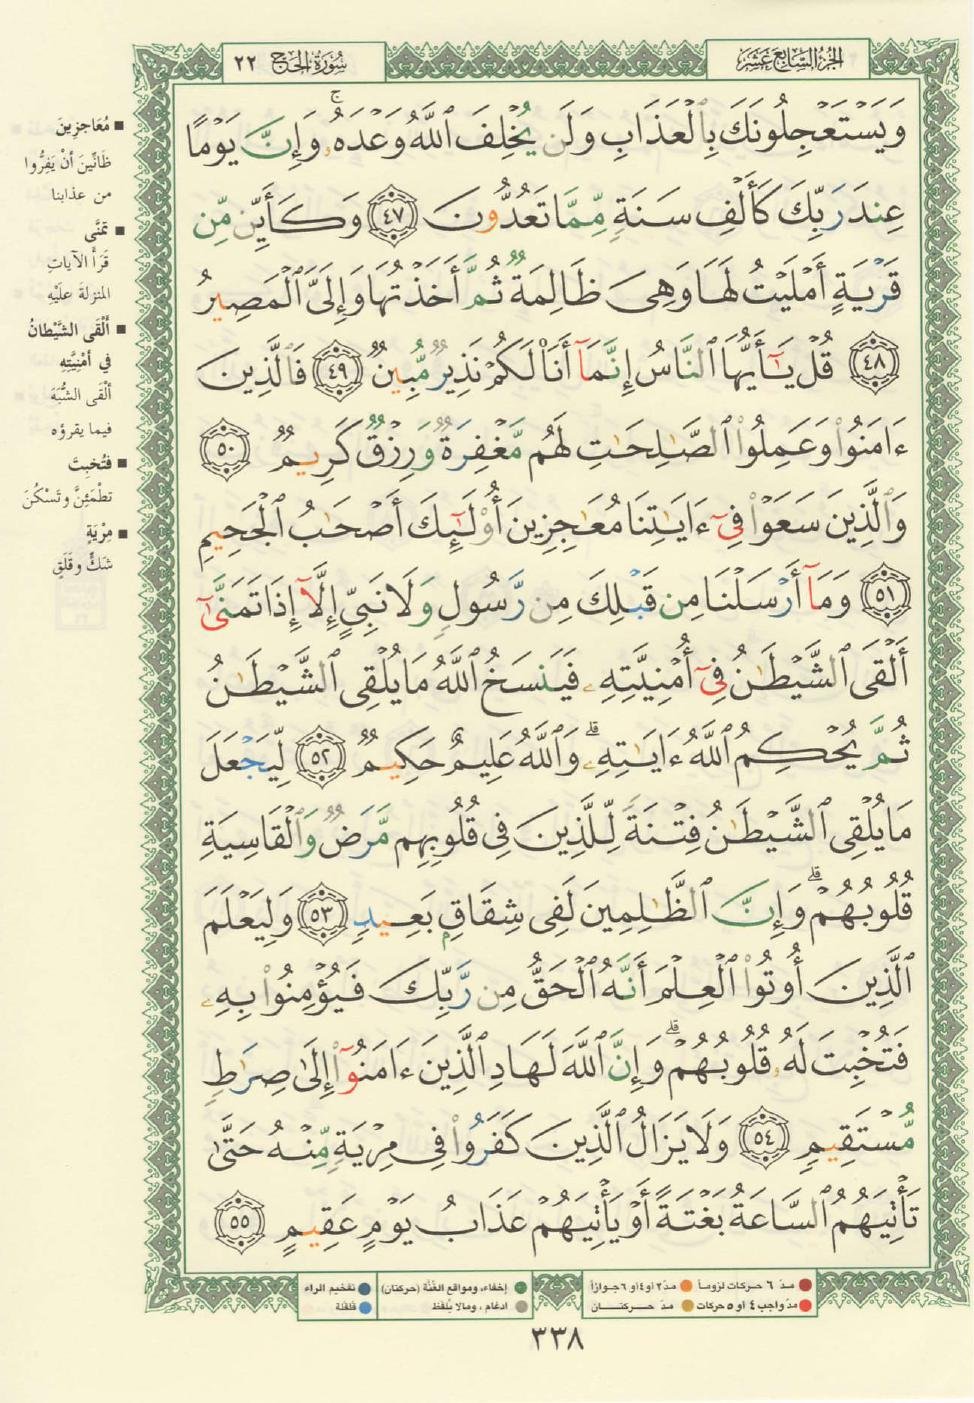 الجزء السابع عشر
سورة الحج ٢٢
وَيَسْتَعْجِلُونَكَ بِٱلْعَذَابِ وَلَن يُخْلِفَ ٱللَّهُ وَعْدَهُۥ ۚ وَإِنَّ يَوْمًا
عِندَ رَبِّكَ كَأَلْفِ سَنَةٍ مِّمَّا تَعُدُّونَ ٤٧ وَكَأَيِّن مِّن
قَرْيَةٍ أَمْلَيْتُ لَهَا وَهِىَ ظَالِمَةٌ ثُمَّ أَخَذْتُهَا وَإِلَىَّ ٱلْمَصِيرُ
٤٨ قُلْ يَٰٓأَيُّهَا ٱلنَّاسُ إِنَّمَآ أَنَا۠ لَكُمْ نَذِيرٌ مُّبِينٌ ٤٩ فَٱلَّذِينَ
ءَامَنُوا۟ وَعَمِلُوا۟ ٱلصَّٰلِحَٰتِ لَهُم مَّغْفِرَةٌ وَرِزْقٌ كَرِيمٌ ٥٠
وَٱلَّذِينَ سَعَوْا۟ فِىٓ ءَايَٰتِنَا مُعَٰجِزِينَ أُو۟لَٰٓئِكَ أَصْحَٰبُ ٱلْجَحِيمِ
٥١ وَمَآ أَرْسَلْنَا مِن قَبْلِكَ مِن رَّسُولٍ وَلَا نَبِىٍّ إِلَّآ إِذَا تَمَنَّىٰٓ
أَلْقَى ٱلشَّيْطَٰنُ فِىٓ أُمْنِيَّتِهِۦ فَيَنسَخُ ٱللَّهُ مَا يُلْقِى ٱلشَّيْطَٰنُ
ثُمَّ يُحْكِمُ ٱللَّهُ ءَايَٰتِهِۦ ۗ وَٱللَّهُ عَلِيمٌ حَكِيمٌ ٥٢ لِّيَجْعَلَ
مَا يُلْقِى ٱلشَّيْطَٰنُ فِتْنَةً لِّلَّذِينَ فِى قُلُوبِهِم مَّرَضٌ وَٱلْقَاسِيَةِ
قُلُوبُهُمْ ۗ وَإِنَّ ٱلظَّٰلِمِينَ لَفِى شِقَاقٍۭ بَعِيدٍ ٥٣ وَلِيَعْلَمَ
ٱلَّذِينَ أُوتُوا۟ ٱلْعِلْمَ أَنَّهُ ٱلْحَقُّ مِن رَّبِّكَ فَيُؤْمِنُوا۟ بِهِۦ
فَتُخْبِتَ لَهُۥ قُلُوبُهُمْ ۗ وَإِنَّ ٱللَّهَ لَهَادِ ٱلَّذِينَ ءَامَنُوٓا۟ إِلَىٰ صِرَٰطٍ
مُّسْتَقِيمٍ ٥٤ وَلَا يَزَالُ ٱلَّذِينَ كَفَرُوا۟ فِى مِرْيَةٍ مِّنْهُ حَتَّىٰ
تَأْتِيَهُمُ ٱلسَّاعَةُ بَغْتَةً أَوْ يَأْتِيَهُمْ عَذَابُ يَوْمٍ عَقِيمٍ ٥٥
■ مُعَاجِزِينَ
ظَانِّينَ أنْ يَفِرُّوا
من عذابنا
■ تمَنَّى
قَرَأَ الآياتِ
المنزلةَ عَلَيْهِ
■ أَلْقَى الشَّيْطانُ
في أمْنِيَّتِهِ
ألْقَى الشُّبَهَ
فيما يقرؤه
■ فَتُخْبِتَ
تطْمَئِنَّ وتَسْكُنَ
■ مِرْيَةٍ
شَكٍّ وقَلَقٍ
مدّ ٦ حركات لزوماً
مدّ ٢ أو ٤ أو ٦ جوازاً
إخفاء، ومواقع الغُنَّة (حركتان)
تفخيم الراء
مدّ واجب ٤ أو ٥ حركات
مدّ حركتان
ادغام، ومالا يُلفظ
قلقلة
٣٣٨